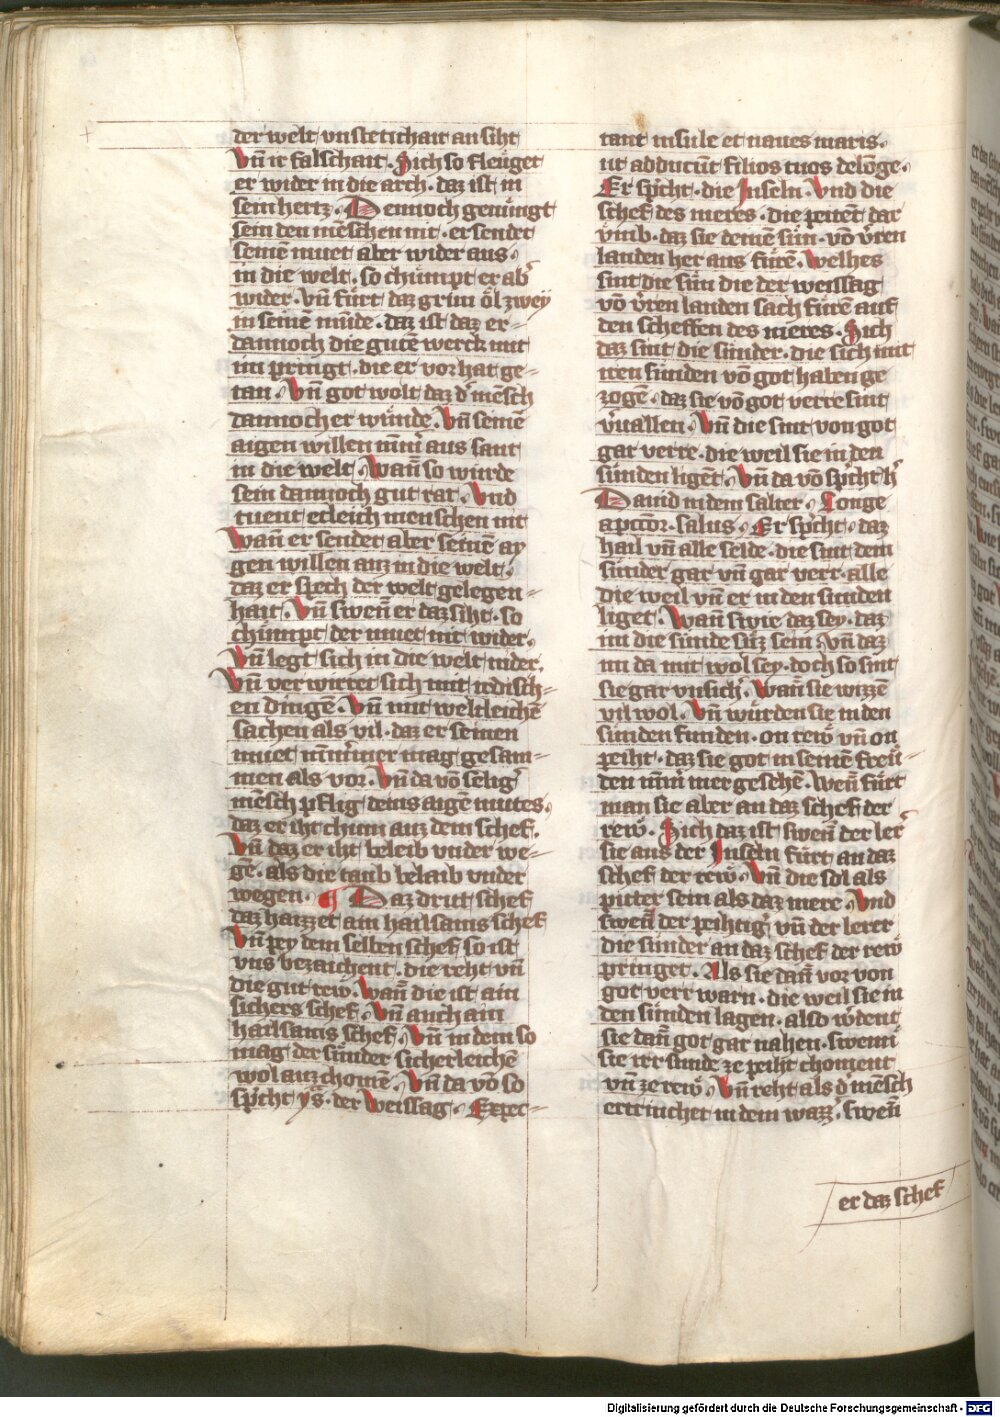 der welt vnstetichait an siht
Vn̄ ir falschait. Sich so fleuget
er wider in die arch. daz ist in
sein hertz. Dennoch genuͤngt
sein den menschen nit. er sendet
seinē muet aber wider aus.
in die welt. so chuͤmpt er ab
wider. Vn̄ fuͤrt daz gruͤn oͤl zwey
in seinē munde. daz ist daz er
dannoch die gutē werck mit
im pringt. die er vor hat ge-
tan. Vn̄ got wolt daz d' mēsch
dannoch er wuͤnde. Vn̄ seinē
aigen willen nīm̄ aus sant
in die welt. Wan̄ so wurde
sein dannoch gut rat. Vnd
tuent etleich menschen nit
Wan̄ er sendet aber seinē ay
gen willen auz in die welt.
daz er spech der welt gelegen-
hait. Vn̄ swen̄ er daz siht. so
chuͤmpt der muet nit wider.
Vn̄ legt sich in die welt nider.
Vn̄ ver wirret sich mit irdisch-
en dingē. Vn̄ mit weltleichē
sachen als vil. daz er seinen
muet nīm̄mer mag gesam-
men als vor. Vn̄ da vō selig
mēsch pflig deins aigē mutes.
daz er iht chum auz dem schef.
Vn̄ daz er iht beleib vnder we-
gē. als die taub belaib vnder
wegen. ¶ Daz drut schef
daz haizzet ain hailsams schef
Vn̄ pey dem selben schef so ist
vns bezaichent. die reht vn̄
die gut rew. Wan̄ die ist ain
sichers schef. Vn̄ auch ain
hailsams schef. Vn̄ in dem so
mag der suͤnder sicherleichē
wol auz chomē. Vn̄ da vō so
sp'cht ys. der Weissag. Expec-
tant insule et naues maris.
ut adducūt filios tuos delōge.
Er sp'cht. die Inseln. Vnd die
schef des meres. die peitēt dar
vmb. daz sie deinē suͤn. vō v'ren
landen her aus fuͤrē. Welhes
sint die suͤn die der weissag
vō v'ren landen sach fuͤrē auf
den scheffen des meres. Sich
daz sint die suͤnder. die sich mit
iren suͤnden vō got haben ge
zogē. daz sie vō got verre sint
v'uallen. Vn̄ die sint von got
gar verre. die weil sie in den
suͤnden ligēt. Vn̄ da vō sp'cht h'
Dauid in dem salter. Longe
a p̄ccōr. salus. Er sp'cht. daz
hail vn̄ alle selde. die sint dem
suͤnder gar vn̄ gar verr. alle
die weil vn̄ er in den suͤnden
liget. Wan̄ swie daz sey. daz
im die suͤnde suͤz sein. Vn̄ daz
im da mit wol sey. doch so sint
sie gar vnsich'. Wan̄ sie wizzē
vil wol. Vn̄ wuͤrden sie in den
suͤnden funden. on rew vn̄ on
peiht. daz sie got in seinē freuͤ-
den nīm̄ mer gesehē. Wen̄ fuͤrt
man sie aber an daz schef der
rew. Sich daz ist swen̄ der ler
sie aus der Inseln fuͤrt an daz
schef der rew. Vn̄ die sol als
pitter sein als daz mere. Vnd
swen̄ der peihtig' vn̄ der lerer
die suͤnder an daz schef der rew
pringet. Als sie dan̄ vor von
got verr warn. die weil sie in
den suͤnden lagen. also w'dent
sie dan̄ got gar nahen. swenn
sie irr sunde ze peiht choment
vn̄ ze rew. Vn̄ reht als d' mēsch
ertrinchet in dem wazz'. swen̄
er daz schef
Digitalisierung gefördert durch die Deutsche Forschungsgemeinschaft - DFG